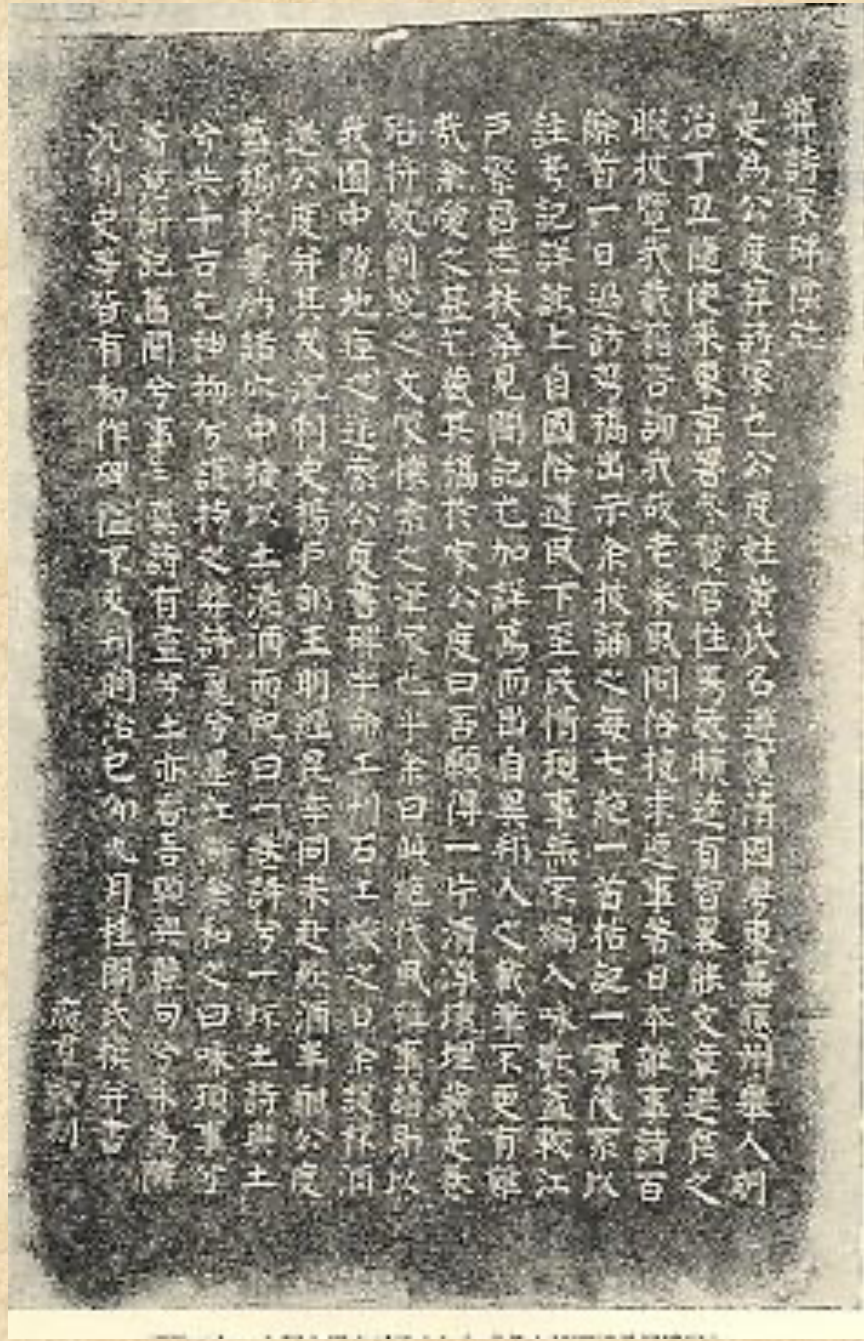 葬詩冢碑陰誌
是為公度葬詩冢也公度姓黃氏名遵憲清國粵東嘉應州舉人明
治丁丑隨使來東京署參贊官性雋敏曠達有智畧能文章退食之
暇披覽我載籍咨詢我故老采風問俗搜求逸事著日本雜事詩百
餘首一日過訪攜稿出示余披誦之每七絕一首括記一事後系以
註考記詳該上自國俗遺風下至民情瑣事無不編入咏歌蓋較江
戶繁昌志扶桑見聞記尤加詳焉而出自異邦人之載筆不更有難
哉余愛之甚乞藏其稿於家公度曰否願得一片清淨壤埋藏是卷
殆將效劉蛻之文冢懷素之筆冢也乎余曰此絕代風雅事請即以
我園中隙地瘞之遂索公度書碑字命工刊石工竣之日余設杯酒
邀公度并其友沈刺史楊戶部王明經昆季同來赴飲酒半酣公度
盛稿於囊納諸穴中掩以土澆酒而祝曰一卷詩兮一坏土詩與土
兮共千古乞神物兮護持之葬詩魂兮墨江滸余和之曰咏瑣事兮
著意新記舊聞兮事事真詩有靈兮土亦香吾願與麗句兮永為鄰
沈刺史等皆有和作碑隘不及刊明治己卯九月桂閣氏撰并書
廣羣鶴刻